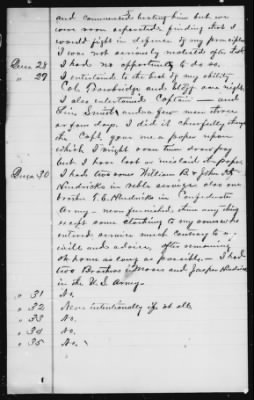 and commenced beating him but we
were soon seperated finding that I
would fight in defence of my principles
I was not seriously molested after that
Ques 28 I had no opportunity to do so.
" 29 I entertained to the best of my ability
Col. and one night
I also entertained Captain — and
Lieu Smith and a few men three
or four days. I did it cheerfully though
the Capt. gave me a paper upon
which I might even draw pay
but I have lost or mislaid the paper
Ques 30 I had two sons William B & John H
Hindricks in rebble service also one
brother G.C. Hindricks in Confederate
Army — none furnished them any thing
except some clothing to my sons who
entered service much contrary to my
will and advice, after remaining
at home as long as possible. — I had
two Brothers Moses and Jasper Hindricks
in the U.S. Army.
" 31 No.
" 32 Never intentionally if at all
" 33 No.
" 34 No.
" 35 No.